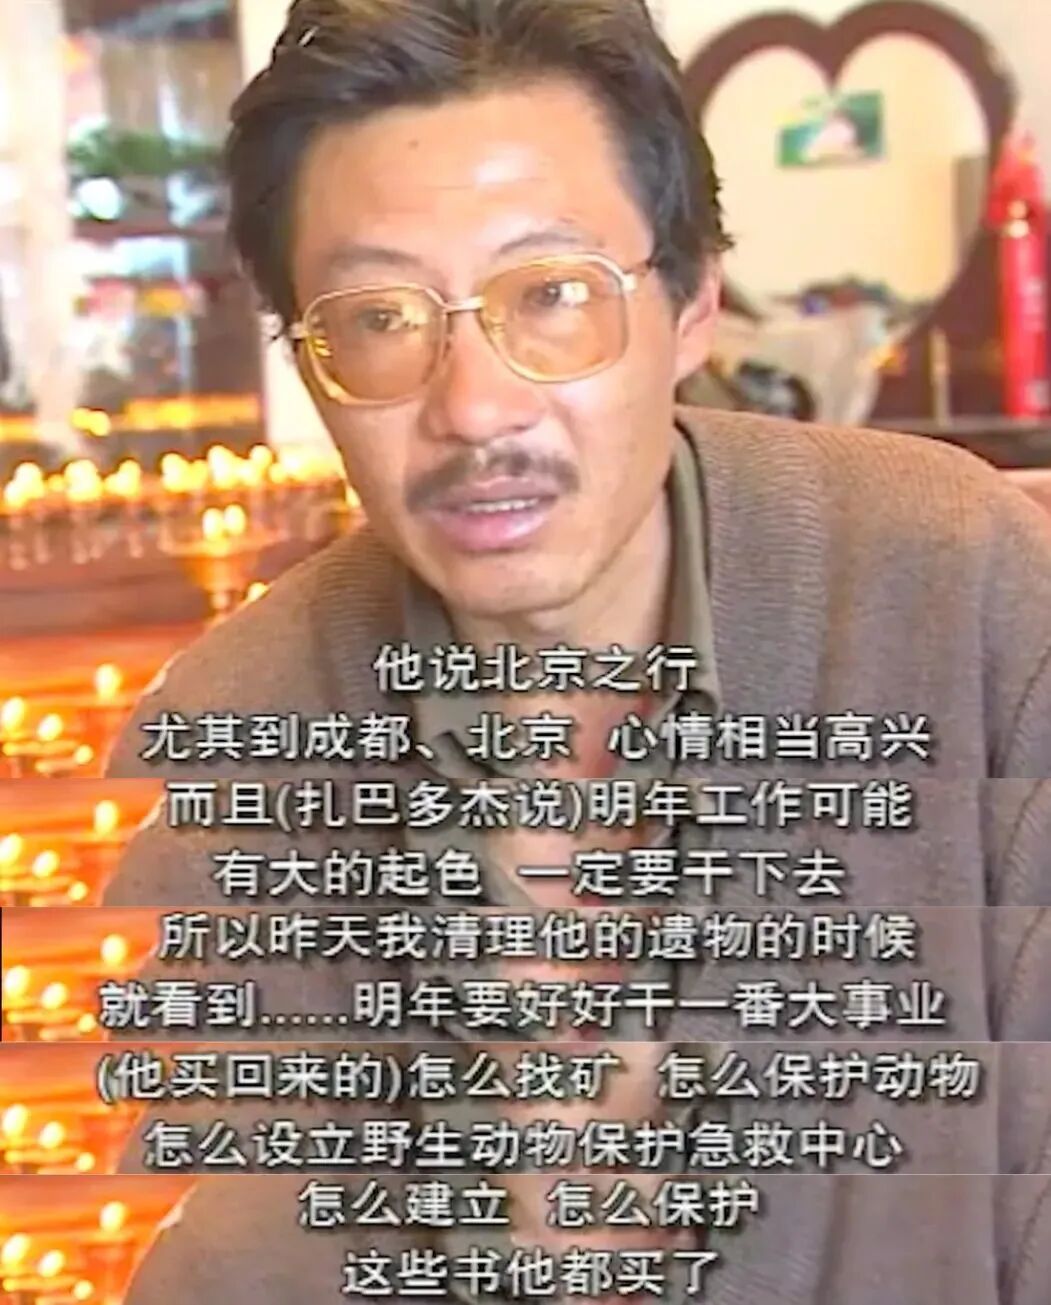 他说北京之行
尤其到成都、北京 心情相当高兴
而且(扎巴多杰说)明年工作可能
有大的起色 一定要干下去
所以昨天我清理他的遗物的时候
就看到......明年要好好干一番大事业
(他买回来的)怎么找矿 怎么保护动物
怎么设立野生动物保护急救中心
怎么建立 怎么保护
这些书他都买了